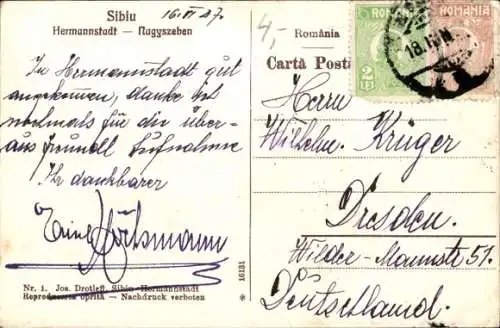 Sibiu
16. VI 27.
Hermannstadt — Nagyszeben
In Hermannstadt gut
angekommen, danke ist
nochmals für die über-
aus freundl Aufnahme
Ihr dankbarer
4,-
România
Carta Post
ROMANIA
2
LEI
18. IUN
Herrn
Wilhelm. Krüger
Dresden.
Wilder-Mannstr 51.
Deutschland.
16131
Nr. 1. Jos. Drotleff, Sibiu—Hermannstadt
Reproducerea oprită — Nachdruck verboten